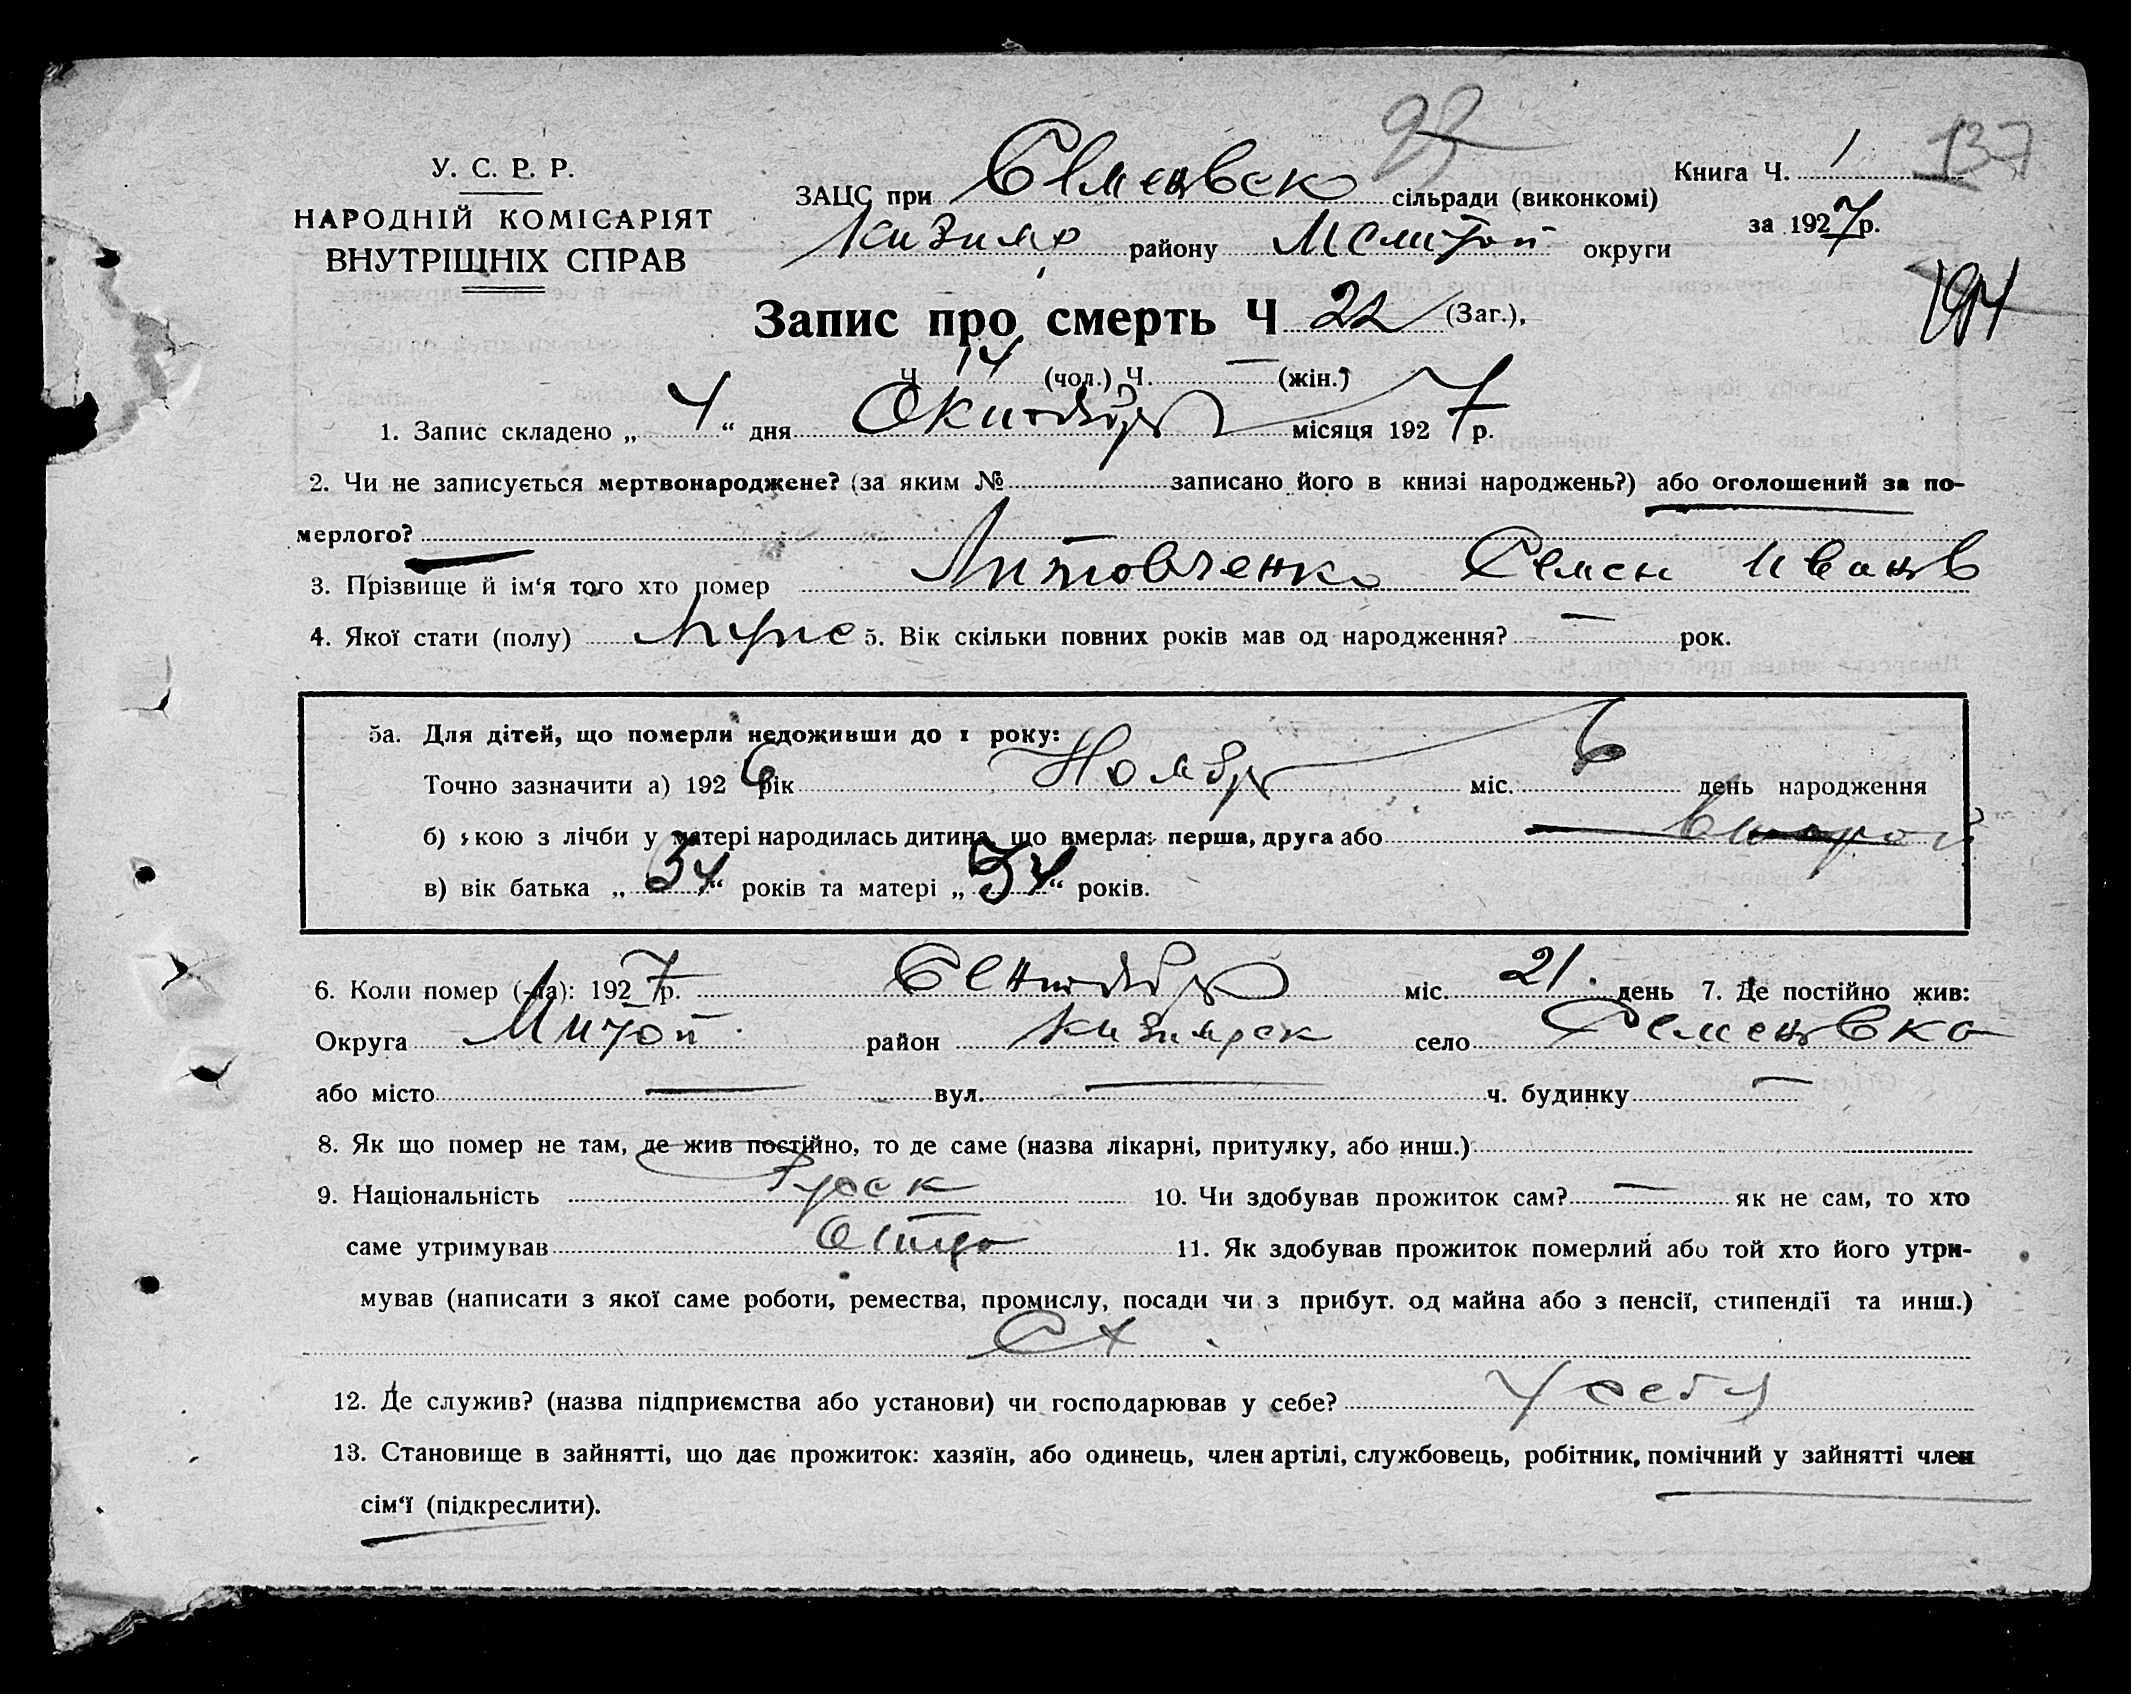 98
У. С. Р. Р.
НАРОДНІЙ КОМІСАРІЯТ
ВНУТРІШНІХ СПРАВ
Книга Ч. 1 137
за 1927 р.
ЗАЦС при Семенвск сільради (виконкомі)
Кизияр району Мелитоп округи
194
Запис про смерть Ч 22 (Заг.),
Ч 14 (чол.) Ч. — (жін.)
1. Запис складено „ 4 “ дня Октября місяця 1927 р.
2. Чи не записується мертвонароджене? (за яким № записано його в книзі народжень?) або оголошений за по-
мерлого?
3. Прізвище й ім‘я того хто помер Литовченко Семен Иванв
4. Якої стати (полу) Муж 5. Вік скільки повних років мав од народження? — рок.
5а. Для дітей, що померли недоживши до 1 року:
Точно зазначити а) 1926 рік Ноябр міс. 6 день народження
б) якою з лічби у матері народилась дитина, що вмерла: перша, друга або второй
в) вік батька „ 34 “ років та матері „ 34 “ років.
6. Коли помер (-ла): 1927 р. Сентября міс. 21 день 7. Де постійно жив:
Округа Митоп район Кизиярск село Семеновка
або місто — вул. — ч. будинку —
8. Як що помер не там, де жив постійно, то де саме (назва лікарні, притулку, або инш.)
9. Національність Руск 10. Чи здобував прожиток сам? — як не сам, то хто
саме утримував Отец 11. Як здобував прожиток померлий або той хто його утри-
мував (написати з якої саме роботи, ремества, промислу, посади чи з прибут. од майна або з пенсії, стипендії та инш.)
Сх
12. Де служив? (назва підприємства або установи) чи господарював у себе? У себя
13. Становище в зайнятті, що дає прожиток: хазяїн, або одинець, член артілі, службовець, робітник, помічний у зайнятті член
сім‘ї (підкреслити).